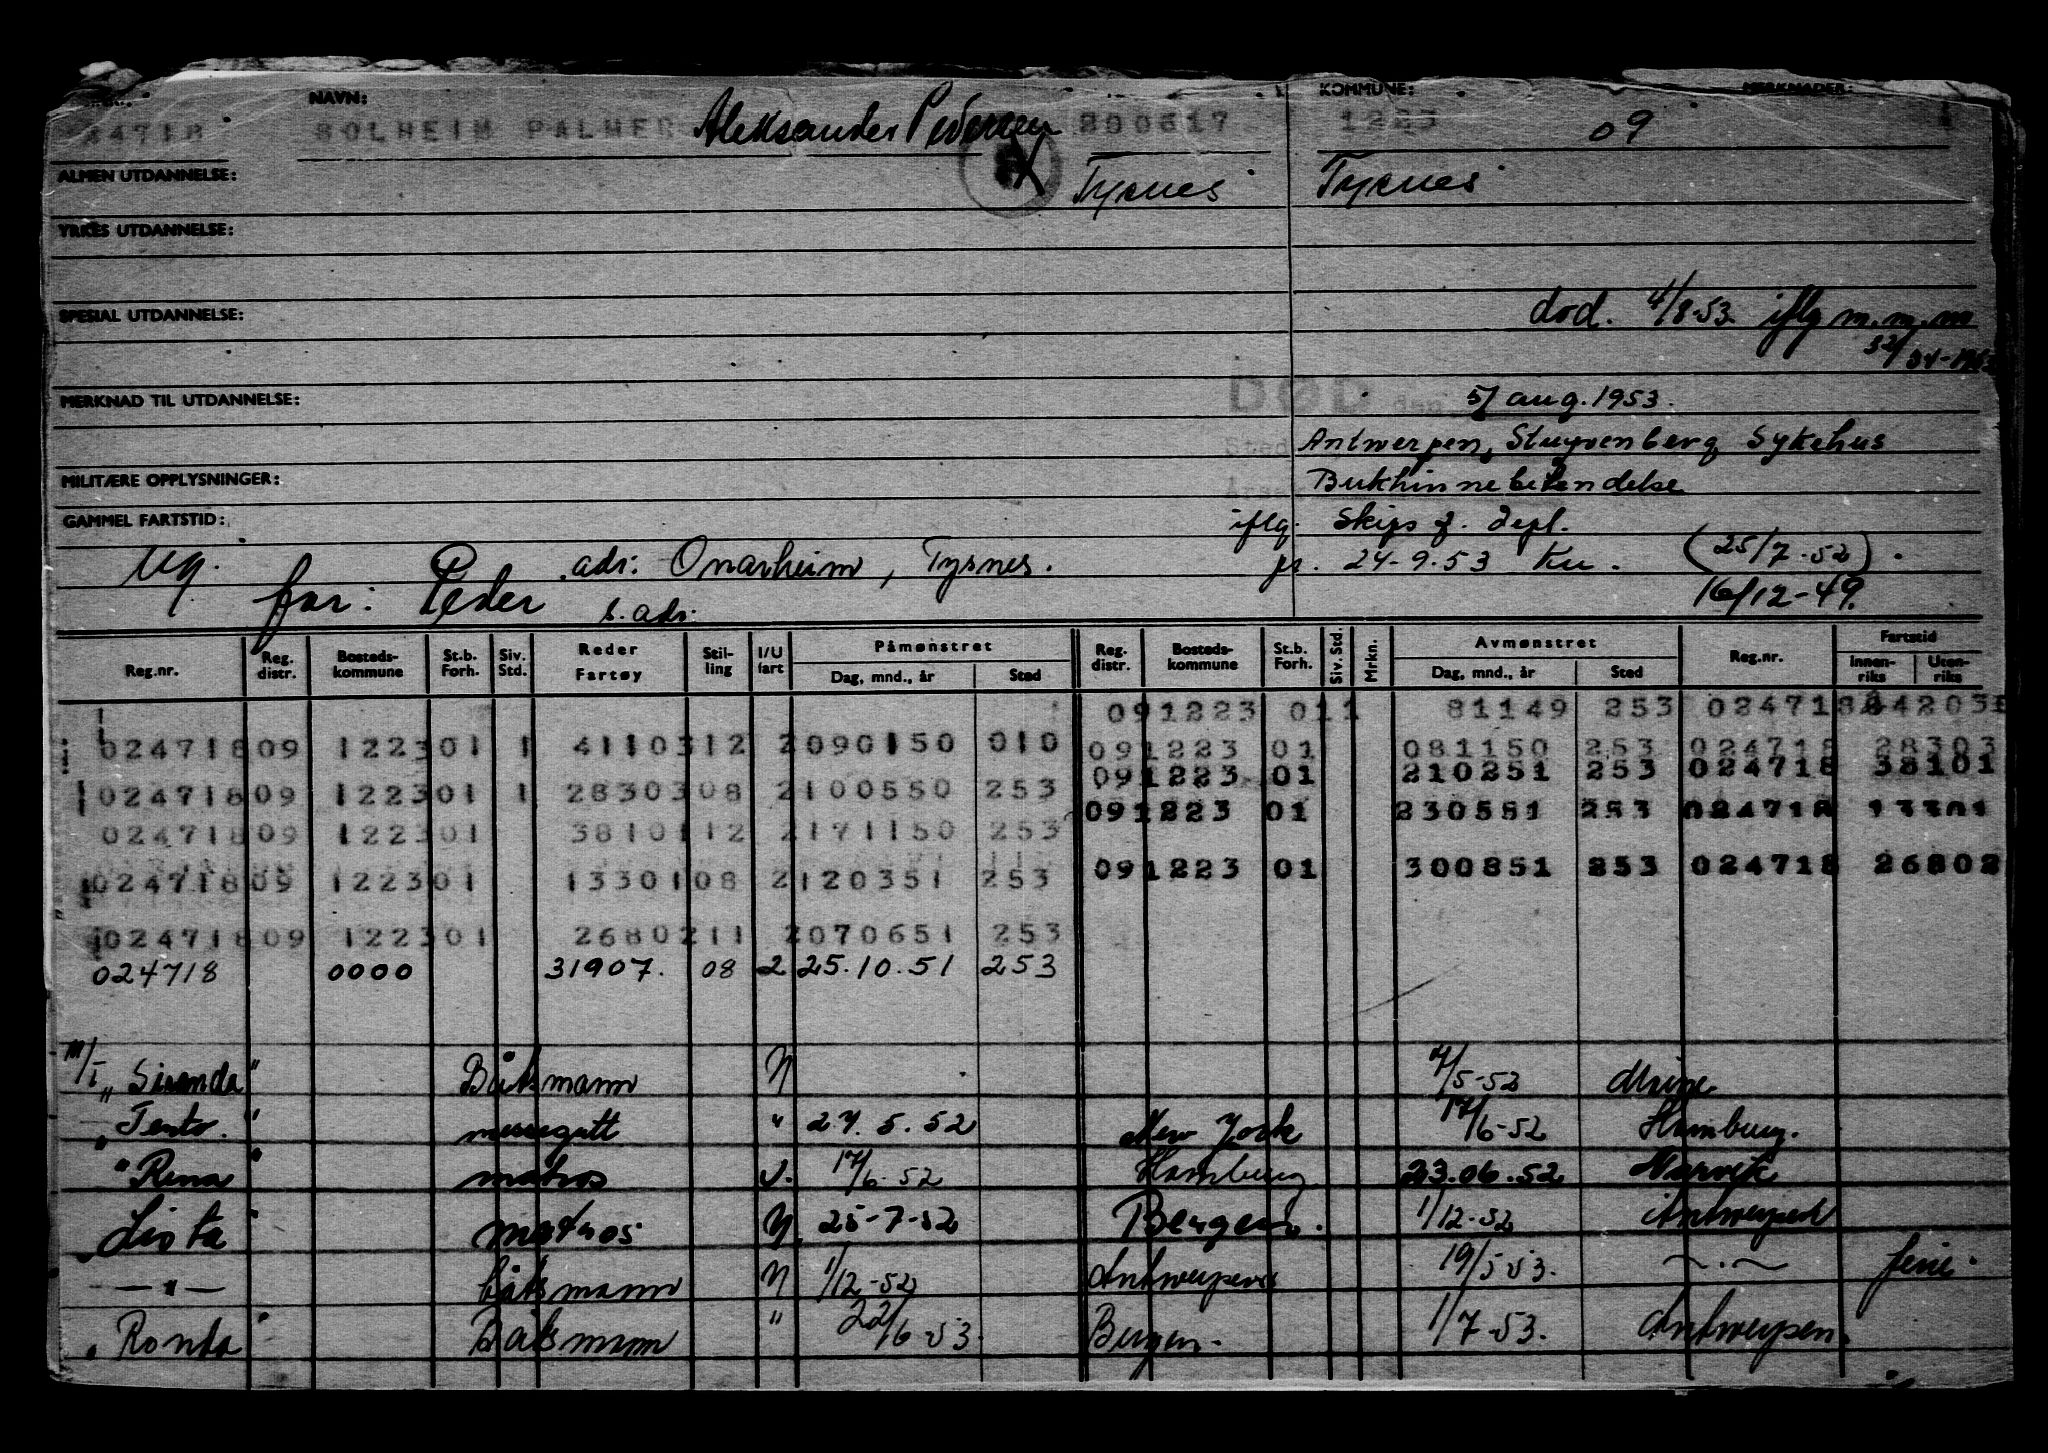 NAVN: KOMMUNE: MERKNADER:
24718 SOLHEIM PALMER Aleksander Pedersen 200617 1223 09
ALMEN UTDANNELSE: Tysnes Tysnes
YRKES UTDANNELSE:
SPESIAL UTDANNELSE: død. 4/8-53. iflg m.m.m
DØD den 5/ aug. 1953.
MERKNAD TIL UTDANNELSE:
Sted Antwerpen, Stuyvenberg Sykehus
MILITÆRE OPPLYSNINGER: Bukhinnebetendelse
GAMMEL FARTSTID: iflg. Skips f. depl.
ug. adr: Onarheim, Tysnes. pr. 24-9.53 Ku. (25/7.52).
far: Peder s. adr: 16/12-49.
Reg.nr. Reg. distr. Bosteds-kommune St.b. Forh. Siv. Std. Reder Fartøy Stil-ling I/U fart Påmønstret Dag, mnd., år Sted Reg. distr. Bosteds-kommune St.b. Forh. Siv. Std. Mrkn. Avmønstret Dag, mnd., år Sted Reg.nr. Fartstid Innen-riks Uten-riks
091223 011 81149 253 024718
024718 09 1223 01 1 41103 12 2 090150 010 091223 01 081150 253 024718 28303
091223 01 210251 253 024718 38101
024718 09 1223 01 1 28303 08 2 100550 253
091223 01 230551 253 024718 13301
024718 09 1223 01 38101 12 2 171150 253
091223 01 300851 253 024718 26802
024718 09 1223 01 13301 08 2 120351 253
024718 09 1223 01 26802 11 2 070651 253
024718 0000 31907. 08 2 25.10.51 253
M/T "Siranda" Båtsmann U 4/5-52
"Tento." messegutt " 27.5.52 New York 17/6-52 Hamburg.
"Rena" matros U. 17/6.52 Hamburg 23.06.52 Narvik
"Lista" matros U 25-7-52 Bergen. 1/12-52 Antwerpen
— " — båtsmann U 1/12-52 Antwerpen 19/5-53. ~ . ~ ferie.
"Ronda" Båtsmann " 22/6-53. Bergen. 1/7-53. Antwerpen.